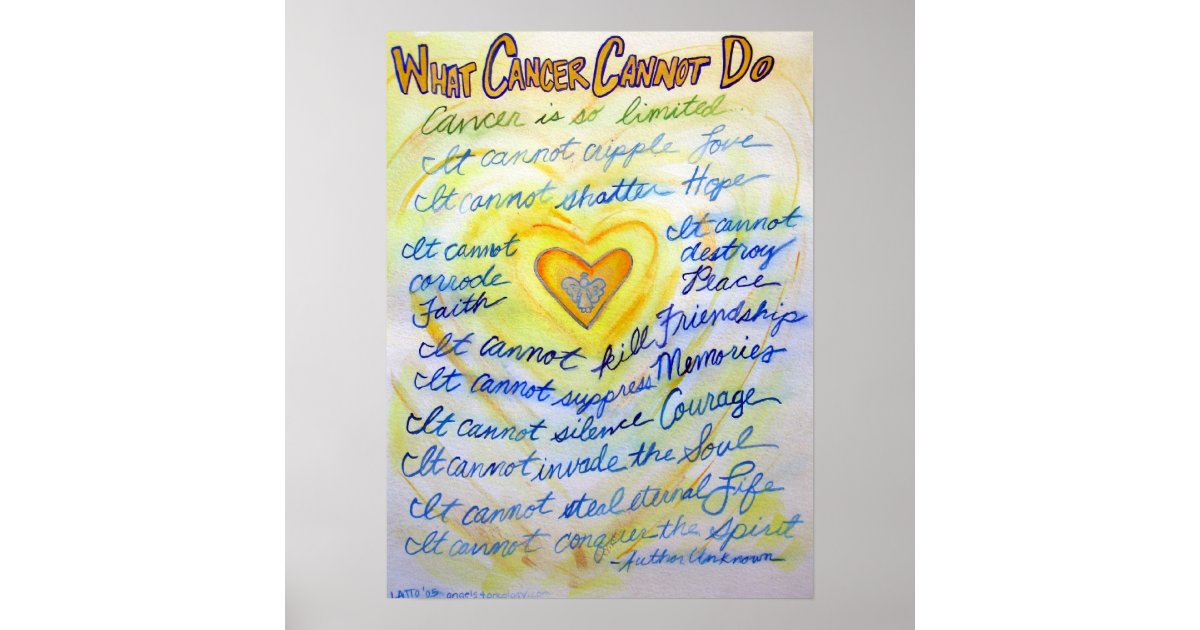 What Cancer Cannot Do
Cancer is so limited...
It cannot cripple Love
It cannot shatter Hope
It cannot
corrode
Faith
It cannot
destroy
Peace
It cannot kill Friendship
It cannot suppress Memories
It cannot silence Courage
It cannot invade the Soul
It cannot steal eternal Life
It cannot conquer the Spirit
-Author Unknown
LATTO '05 angels4oncology.com